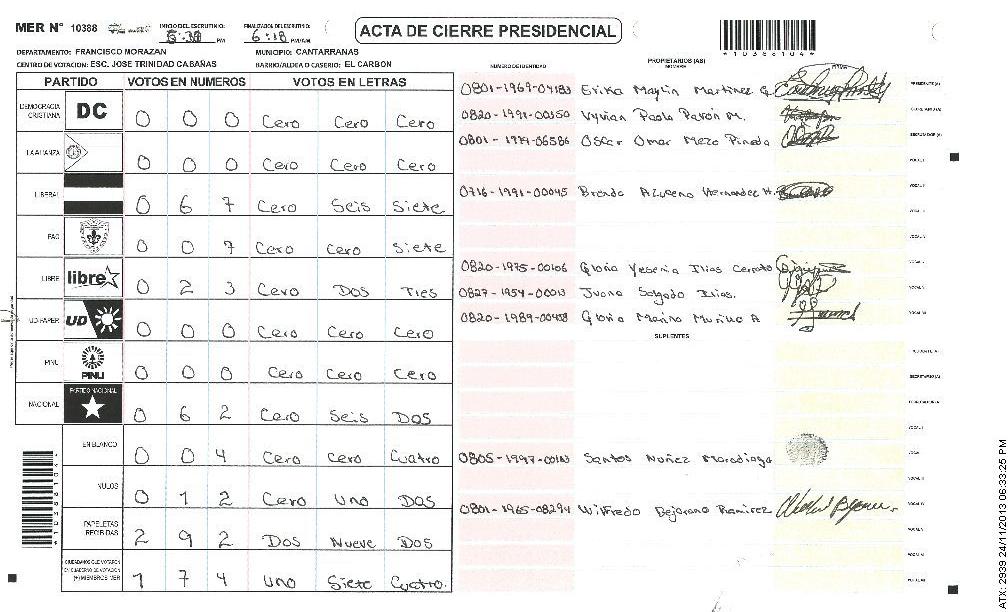 MER N° 10388
INICIO DEL ESCRUTINIO: PM
FINALIZACION DEL ESCRUTINIO: 6:18 PM/AM
ACTA DE CIERRE PRESIDENCIAL
*10388104*
DEPARTAMENTO: FRANCISCO MORAZAN MUNICIPIO: CANTARRANAS
CENTRO DE VOTACION: ESC. JOSE TRINIDAD CABAÑAS BARRIO/ALDEA O CASERIO: EL CARBON
PARTIDO VOTOS EN NUMEROS VOTOS EN LETRAS
DEMOCRACIA CRISTIANA DC 0 0 0 Cero Cero Cero
LA ALIANZA 0 0 0 Cero Cero Cero
LIBERAL 0 6 7 Cero Seis Siete
FAC 0 0 7 Cero Cero Siete
LIBRE libre 0 2 3 Cero Dos Tres
UD-FAPER UD 0 0 0 Cero Cero Cero
PINU PINU 0 0 0 Cero Cero Cero
NACIONAL PARTIDO NACIONAL 0 6 2 Cero Seis Dos
EN BLANCO 0 0 4 Cero Cero Cuatro
NULOS 0 1 2 Cero Uno Dos
PAPELETAS RECIBIDAS 2 9 2 Dos Nueve Dos
CIUDADANOS QUE VOTARON EN CUADERNO DE VOTACION (+) MIEMBROS MER 1 7 4 Uno Siete Cuatro.
NUMERO DE IDENTIDAD PROPIETARIOS (AS) NOMBRE FIRMA
0801-1969-04183 Erika Maylin Martinez G PRESIDENTE (A)
0820-1991-00350 Vyvian Paola Pavon M. SECRETARIO (A)
0801-1979-06586 Oscar Omar Meza Pineda ESCRUTADOR (A)
VOCAL I
0716-1991-00045 Brenda Azucena Hernandez H. VOCAL II
0820-1975-00106 Gloria Yesenia Elias Cerrato
0827-1954-00013 Juana Salgado Elias.
0820-1989-00408 Gloria Marina Murillo A
SUPLENTES
PRESIDENTE (A)
SECRETARIO (A)
ESCRUTADOR (A)
VOCAL I
0805-1997-00183 Santos Nuñez Maradiaga
0801-1965-08294 Wilfredo Bejarano Ramirez
ATX: 2939 24/11/2013 06:33:25 PM